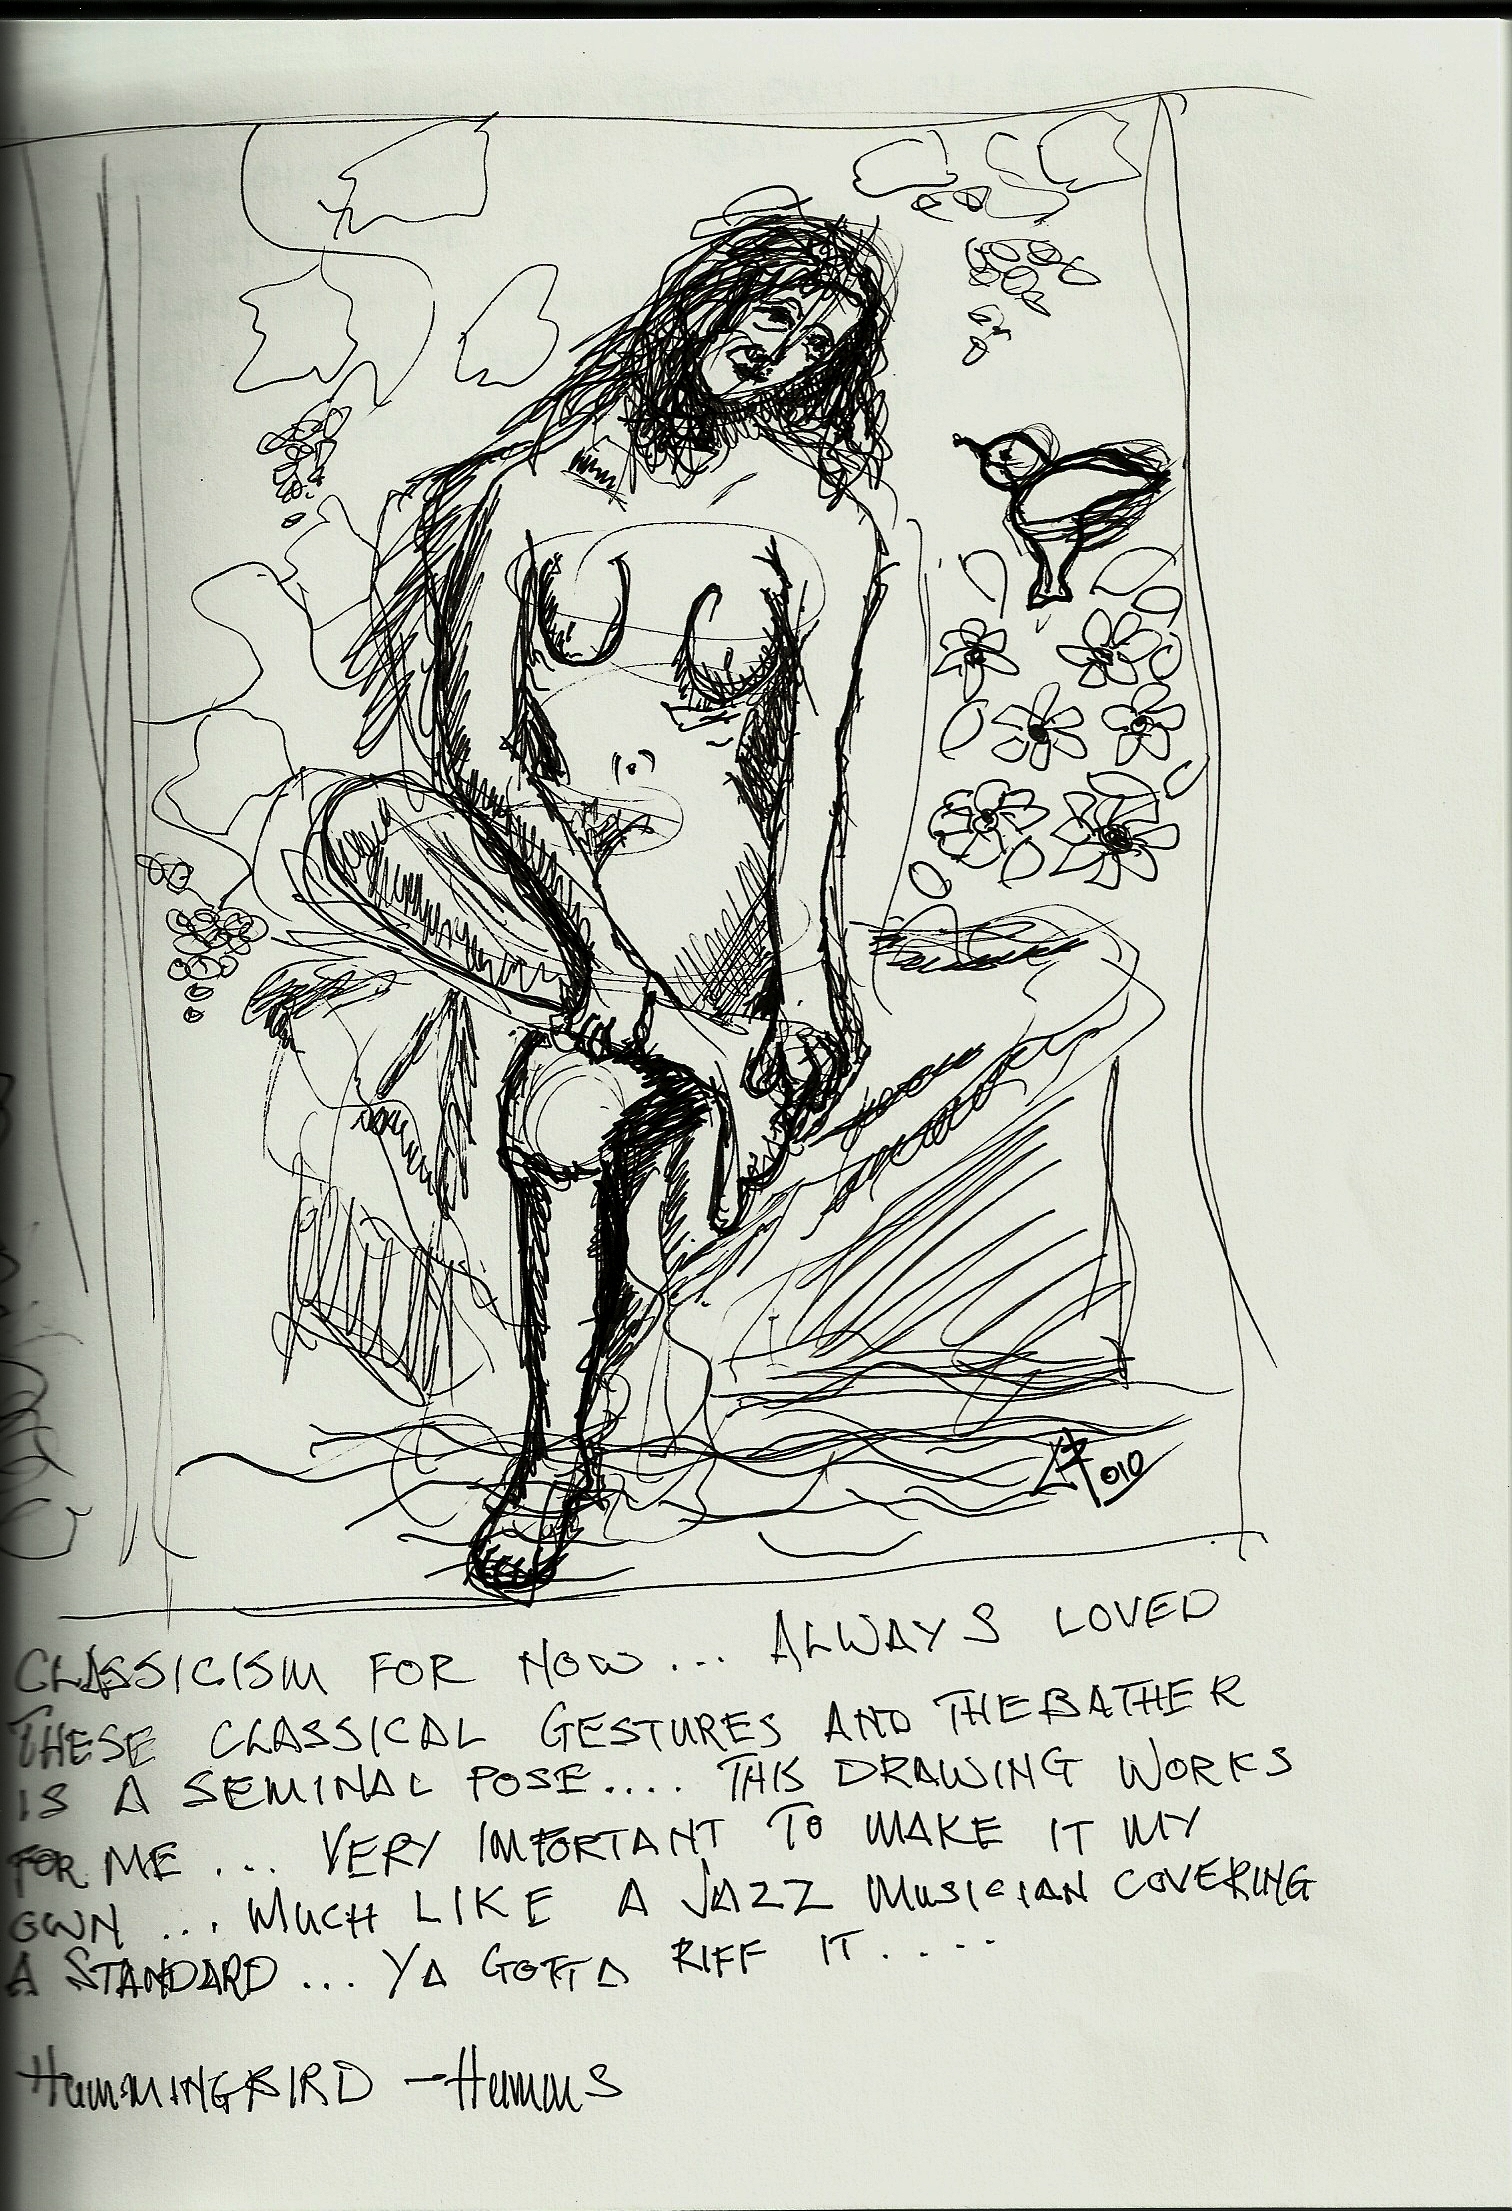 010
CLASSICISM FOR NOW... ALWAYS LOVED
THESE CLASSICAL GESTURES AND THE BATHER
IS A SEMINAL POSE.... THIS DRAWING WORKS
FOR ME ... VERY IMPORTANT TO MAKE IT MY
OWN ... MUCH LIKE A JAZZ MUSICIAN COVERING
A STANDARD... YA GOTTA RIFF IT.....
HUMMINGBIRD -HUMMS